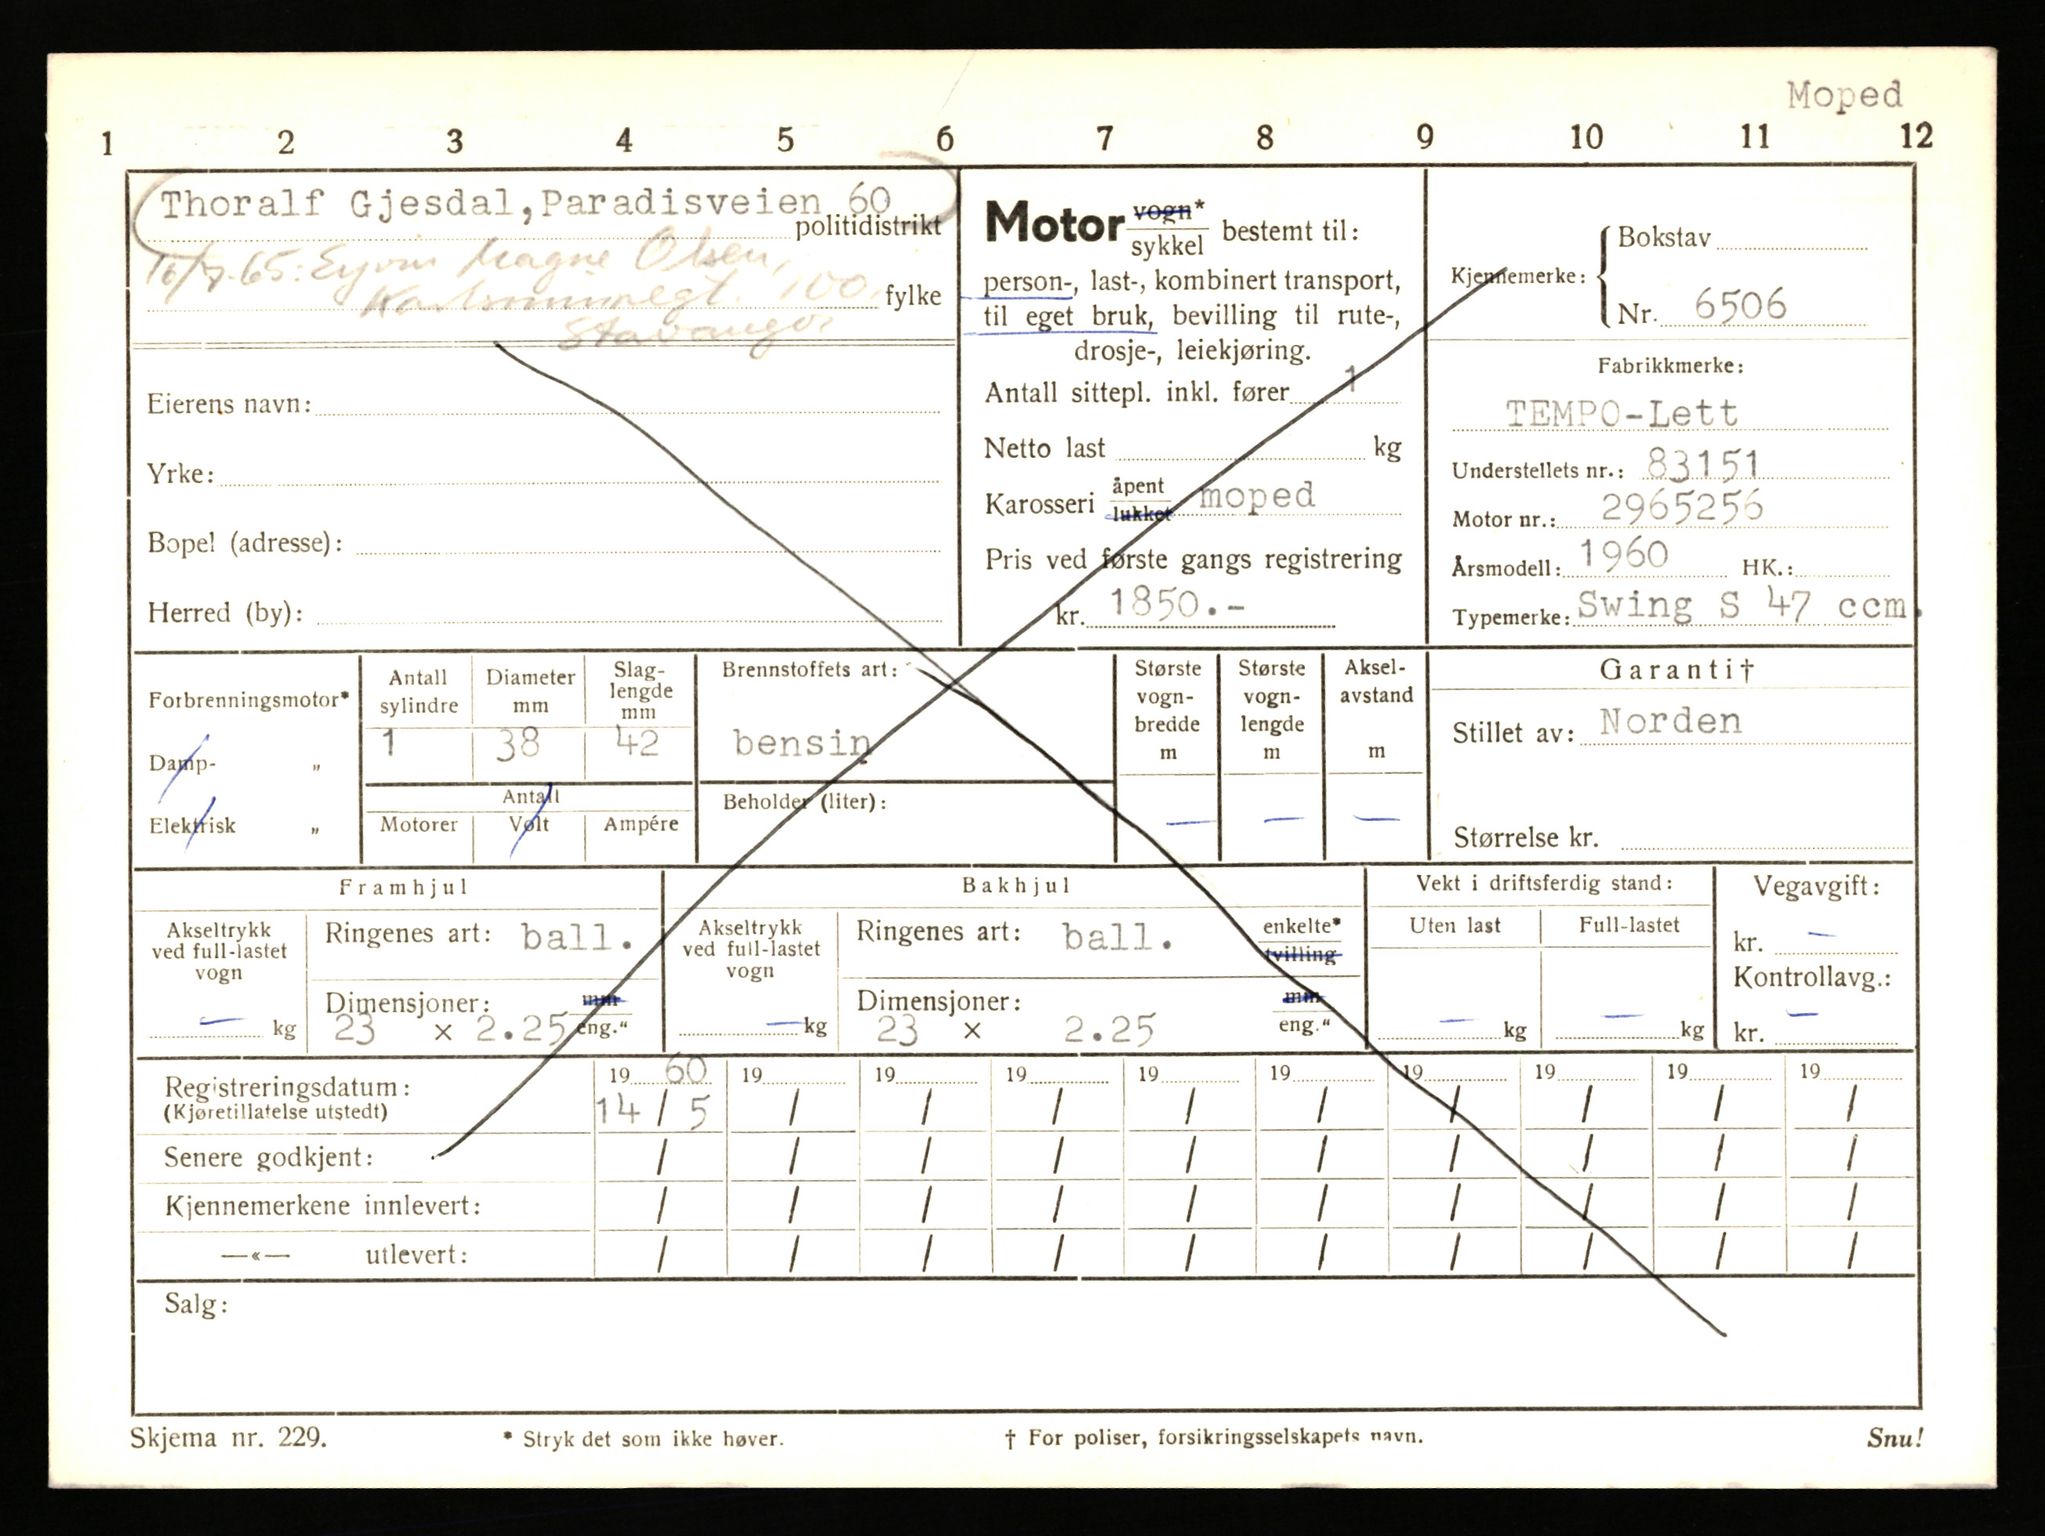 Moped
1 2 3 4 5 6 7 8 9 10 11 12
Thoralf Gjesdal, Paradisveien 60
politidistrikt
16/7-65: Eyvin Magne Olsen,
100, fylke
Stavanger
Eierens navn:
Yrke:
Bopel (adresse):
Herred (by):
Motor vogn* sykkel bestemt til:
person-, last-, kombinert transport,
til eget bruk, bevilling til rute-,
drosje-, leiekjøring.
Antall sittepl. inkl. fører 1
Netto last kg
Karosseri åpent lukket moped
Pris ved første gangs registrering
kr. 1850.-
Kjennemerke: Bokstav
Nr. 6506
Fabrikkmerke:
TEMPO-Lett
Understellets nr.: 83151
Motor nr.: 2965256
Årsmodell: 1960 HK.:
Typemerke: Swing S 47 ccm.
Forbrenningsmotor*
Damp- „
Elektrisk „
Antall sylindre
1
Diameter mm
38
Slag-lengde mm
42
Antall
Motorer Volt Ampére
Brennstoffets art:
bensin
Beholder (liter):
Største vogn-bredde m
—
Største vogn-lengde m
—
Aksel-avstand m
—
Garanti†
Stillet av: Norden
Størrelse kr.
Framhjul
Akseltrykk
ved full-lastet
vogn
— kg
Ringenes art: ball.
Dimensjoner: mm
23 × 2.25 eng."
Bakhjul
Akseltrykk
ved full-lastet
vogn
— kg
Ringenes art: ball. enkelte* tvilling
Dimensjoner: mm
23 × 2.25 eng."
Vekt i driftsferdig stand:
Uten last Full-lastet
— kg — kg
Vegavgift:
kr. —
Kontrollavg.:
kr. —
Registreringsdatum: 19 60 19 19 19 19 19 19 19 19 19
(Kjøretillatelse utstedt) 14 / 5 / / / / / / / / /
Senere godkjent: / / / / / / / / / /
Kjennemerkene innlevert: / / / / / / / / / /
—«— utlevert: / / / / / / / / / /
Salg:
Skjema nr. 229. * Stryk det som ikke høver. † For poliser, forsikringsselskapets navn. Snu!